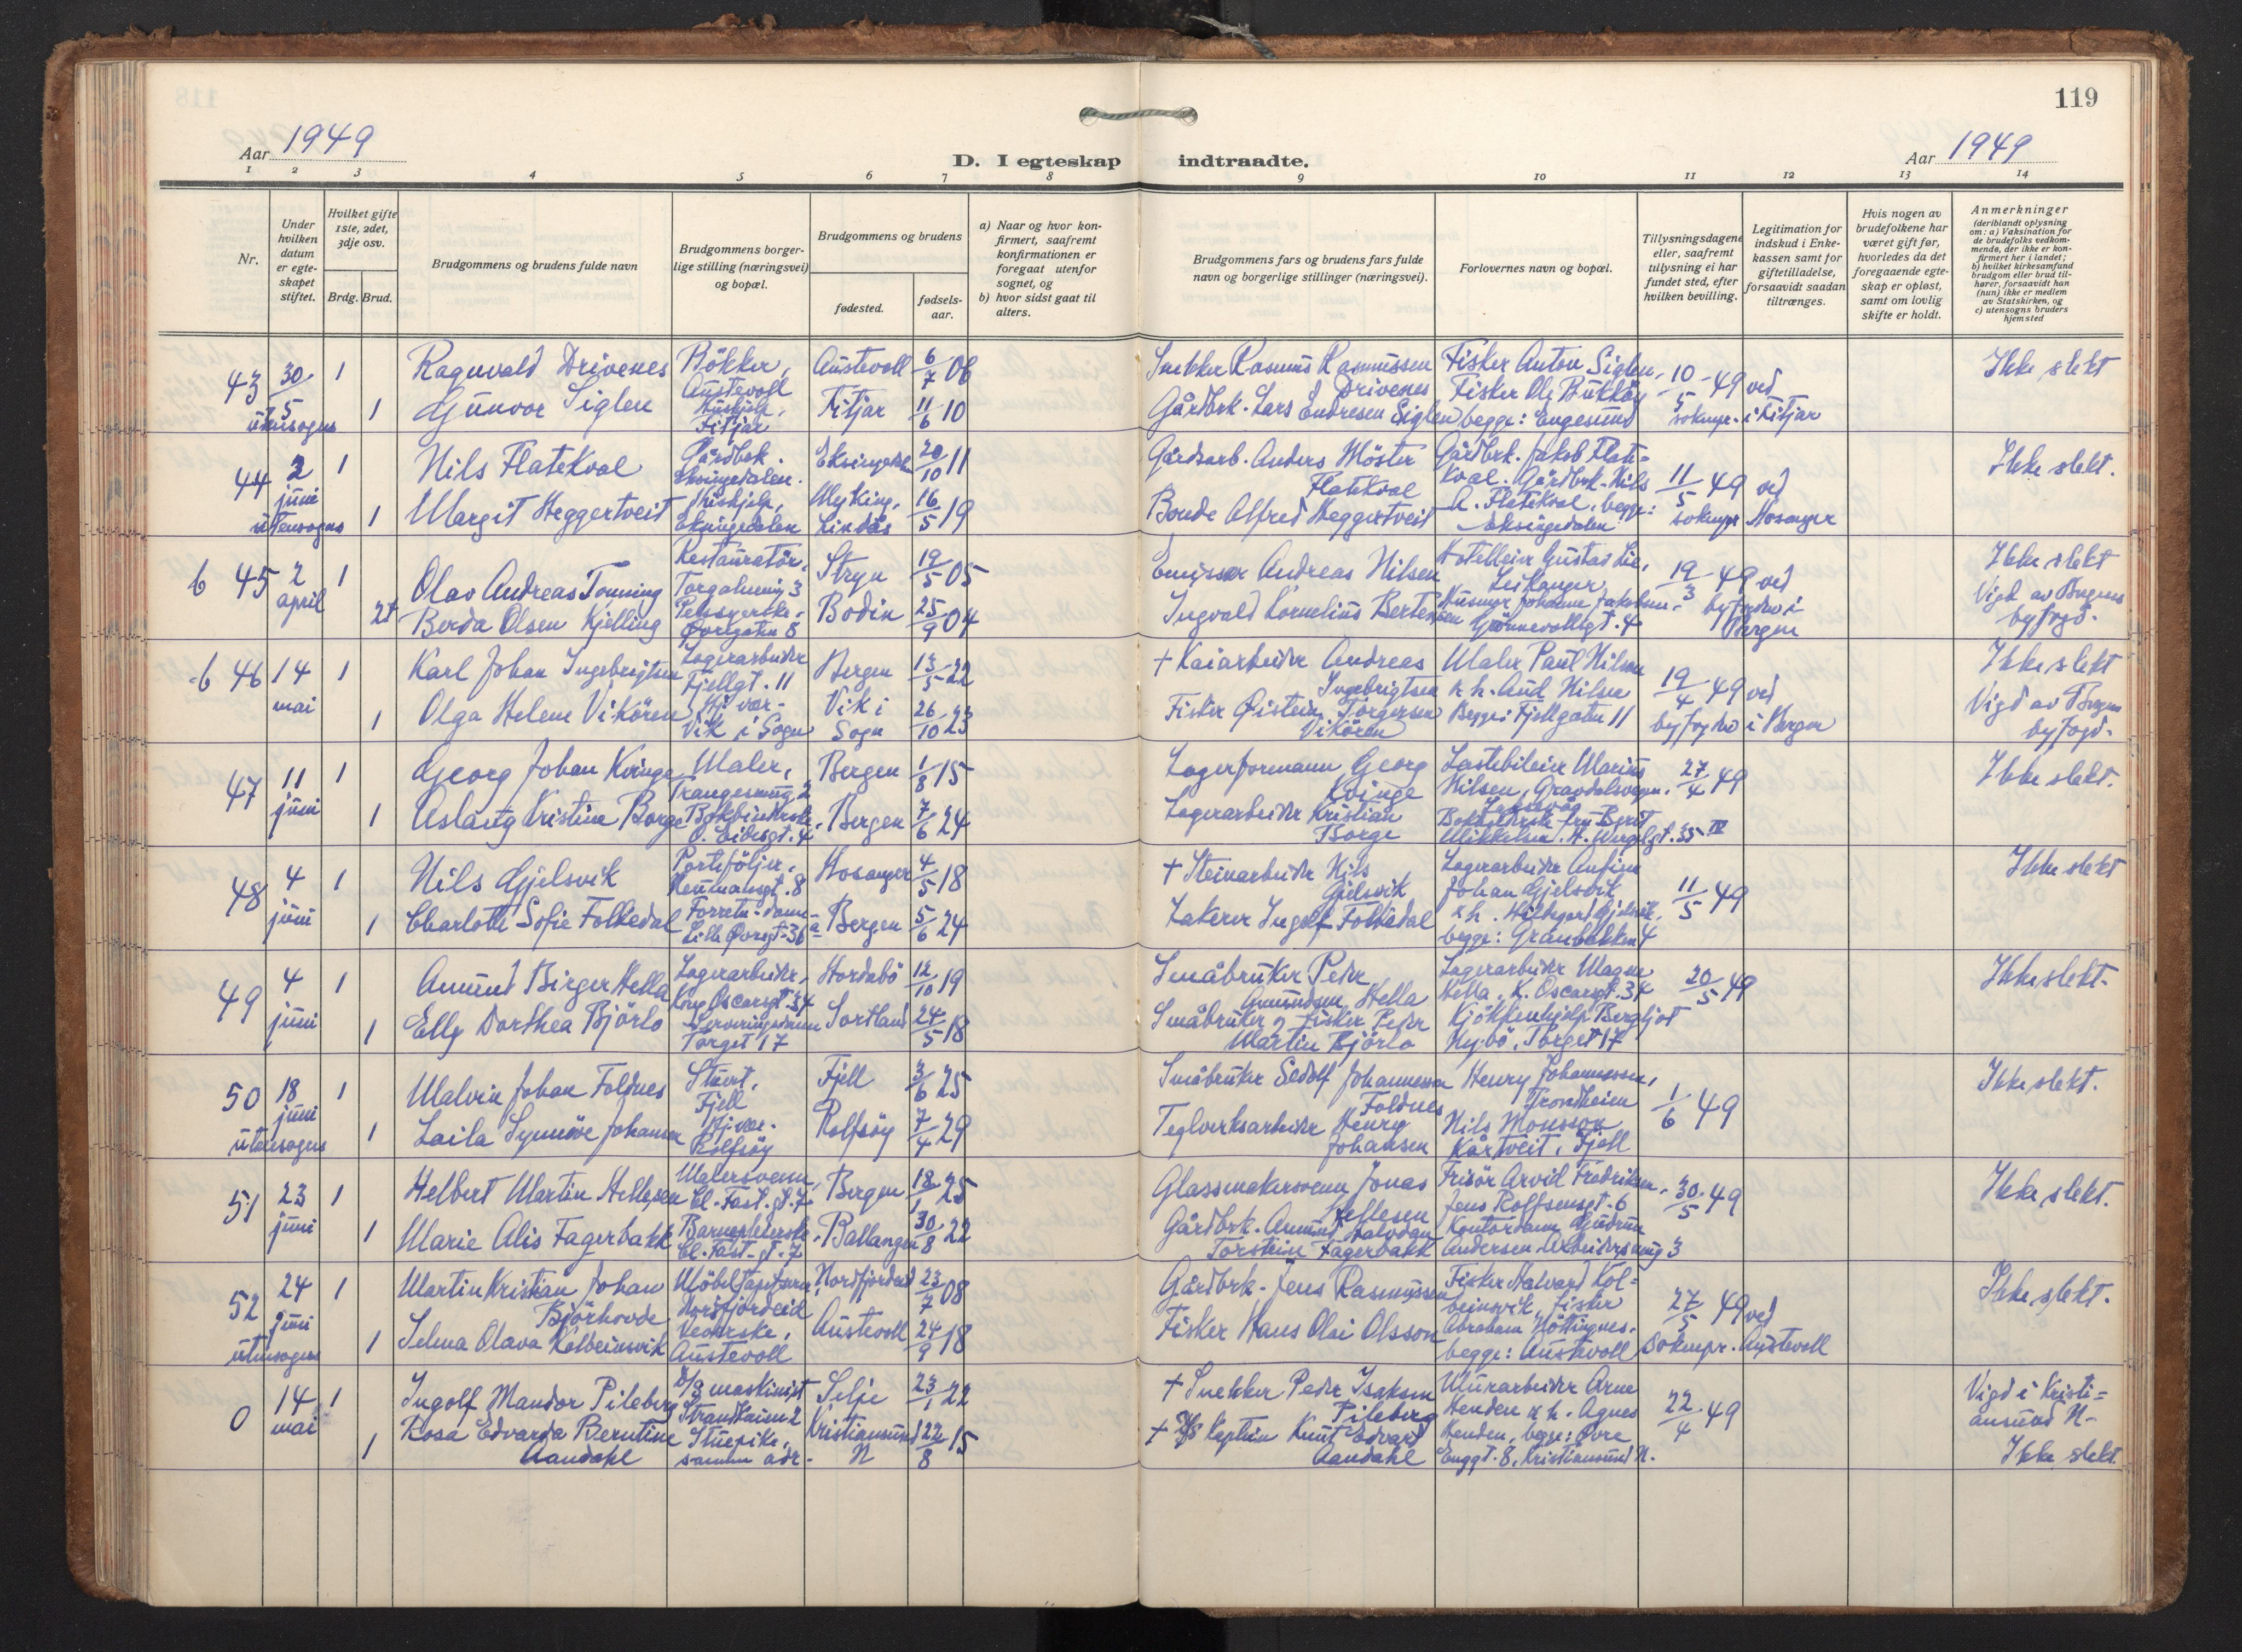 119
Aar 1949
D. I egteskap indtraadte.
Aar 1949
1 2 3 4 5 6 7 8 9 10 11 12 13 14
Nr.
Under
hvilken
datum
er egte-
skapet
stiftet.
Hvilket gifte
1ste, 2det,
3dje osv.
Brdg. Brud.
Brudgommens og brudens fulde navn
Brudgommens borger-
lige stilling (næringsvei)
og bopæl.
Brudgommens og brudens
fødested.
fødsels-
aar.
a) Naar og hvor kon-
firmert, saafremt
konfirmationen er
foregaat utenfor
sognet, og
b) hvor sidst gaat til
alters.
Brudgommens fars og brudens fars fulde
navn og borgerlige stillinger (næringsvei).
Forlovernes navn og bopæl.
Tillysningsdagene
eller, saafremt
tillysning ei har
fundet sted, efter
hvilken bevilling.
Legitimation for
indskud i Enke-
kassen samt for
giftetilladelse,
forsaavidt saadan
tiltrænges.
Hvis nogen av
brudefolkene har
været gift før,
hvorledes da det
foregaaende egte-
skap er opløst,
samt om lovlig
skifte er holdt.
Anmerkninger
(deriblandt oplysning
om: a) Vaksination for
de brudefolks vedkom-
mende, der ikke er kon-
firmert her i landet;
b) hvilket kirkesamfund
brudgom eller brud til-
hører, forsaavidt han
(hun) ikke er medlem
av Statskirken, og
c) utensogns bruders
hjemsted
43 30/5 utensogns 1 1
Ragnvald Drivenes
Gunvor Siglen
Bökker,
Austevoll
Hushjelp,
Fitjar
Austevoll 6/7 06
Fitjar 11/6 10
Snekker Rasmus Rasmussen
Drivenes
Gårdbrk. Lars Endresen Siglen
Fisker Anton Siglen,
Fisker Ole Bukköy
begge: Engesund
10/5-49 ved
soknepr. i Fitjar
Ikke slekt
44 2 juni utensogns 1 1
Nils Flatekval
Margit Heggertveit
Gårdbrk.
Eksingedalen.
Hushjelp,
Eksingedalen
Eksingedalen 20/10 11
Myking,
Lindås 16/5 19
Gårdsarb. Anders Möster
Flatekval
Bonde Alfred Heggertveit
Gårdbrk. Jakob Flate-
kval. Gårdbrk. Nils
A. Flatekval, begge:
Eksingedalen
11/5 49 ved
soknepr Hosanger
Ikke slekt.
b 45 2 april 1 2t
Olav Andreas Tonning
Berda Olsen Kjelling
Restauratör,
Torgalmening 3
Øvregaten 8
Stryn 19/5 05
Bodin 25/9 04
Emissær Andreas Nilsen
Ingvald Kornelius Bertensen
Hotelleier Gustav Lie,
Leikanger
Husmor Johanne Jakobsen,
Grönnevollsgt. 4
19/3 49 ved
byfogden i
Bergen
Ikke slekt
Vigd av Bergens
byfogd.
b 46 14 mai 1 1
Karl Johan Ingebrigtsen
Olga Helene Vikören
Lagerarbeider
Fjellgt. 11
Hj.vær.
Vik i Sogn
Bergen 13/5 22
Vik i
Sogn 26/10 23
+ Kaiarbeider Andreas
Ingebrigtsen
Fisker Øistein Torgersen
Vikören
Maler Paul Nilsen
& h. Aud Nilsen
Begge: Fjellgaten 11
19/4 49 ved
byfogden i Bergen
Ikke slekt
Vigd av Bergens
byfogd.
47 11 juni 1 1
Georg Johan Kvinge
Aslaug Kristine Borge
Maler,
Trangesmug 2
Bokbinderske,
O. Eidesgt. 4
Bergen 1/8 15
Bergen 7/6 24
Lagerformann Georg
Kvinge
Lagerarbeider Kristian
Borge
Lastebileier Marius
Nilsen, Gravdalsvegen,
Laksevåg
Bokholderske fru Berit
Mikkelsen, H. Wergelgt. 35 IV
27/4 49
Ikke slekt.
48 4 juni 1 1
Nils Gjelsvik
Charlotte Sofie Folkedal
Porteföljer,
Neumannsgt. 8
Forretn.dame
Lille Øvregt. 36a
Hosanger 4/5 18
Bergen 5/6 24
+ Steinarbeider Nils
Gjelsvik
Lakerer Ingolf Folkedal
Lagerarbeider Anfinn
Johan Gjelsvik
& h. Hildegard Gjelsvik,
begge: Granbakken 4
11/5 49
Ikke slekt
49 4 juni 1 1
Amund Birger Hella
Elly Dorthea Björlo
Lagerarbeider,
Kong Oscarsgt. 34
Serveringsdame
Torget 17
Hordabö 12/10 19
Sortland 24/5 18
Småbruker Peder
Amundsen Hella
Småbruker og fisker Peder
Martin Björlo
Lagerarbeider Magne
Hella, K. Oscarsgt. 34
Kjökkenhjelp Bergljot
Nybö, Torget 17
20/5 49
Ikke slekt.
50 18 juni utensogns 1 1
Malvin Johan Foldnes
Laila Synnöve Johansen
Stuert,
Fjell
Hj.vær.
Rolfsöy
Fjell 3/6 25
Rolfsöy 7/4 29
Småbruker Sedolf Johannessen
Foldnes
Teglverksarbeider Henry
Johansen
Henry Johannessen,
Trondheim
Nils Monsson
Kårtveit, Fjell
1/6 49
Ikke slekt.
51 23 juni 1 1
Helbert Martin Hellesen
Marie Alis Fagerbakk
Malersvenn,
Cl. Fast. gt. 7
Barnepleierske,
Cl. Fast. gt. 7
Bergen 18/1 25
Ballangen 30/8 22
Glassmakersvenn Jonas
Hellesen
Gårdbrk. Amund Halvdan
Torstein Fagerbakk
Frisör Arvid Fredriksen,
Jens Rolfsensgt. 6
Kontordame Gudrun
Andersen, Arbeidersmug 3
30/5 49
Ikke slekt.
52 24 juni utensogns 1 1
Martin Kristian Johan
Björhovde
Selma Olava Kolbeinsvik
Möbeltapetserer,
Nordfjordeid
Veverske,
Austevoll
Nordfjordeid 23/7 08
Austevoll 24/9 18
Gårdbrk. Jens Rasmussen
Fisker Hans Olai Olsson
Fisker Halvard Kol-
beinsvik, fisker
Abraham Höttingnes.
begge: Austevoll
27/5 49 ved
Soknepr. Austevoll
Ikke slekt.
0 14 mai 1 1
Ingolf Mandor Pileberg
Rosa Edvarda Berntine
Aandahl
D/S maskinist
Strandkaien 2
Stuepike,
samme adr.
Selje 23/1 22
Kristiansund
N 22/8 15
+ Snekker Peder Isaksen
Pileberg
+ Kaptein Knut Edvard
Aandahl
Murarbeider Arne
Henden & h. Agnes
Henden, begge: Øvre
Enggt. 8, Kristiansund N.
22/4 49
Vigd i Kristi-
ansund N-
Ikke slekt